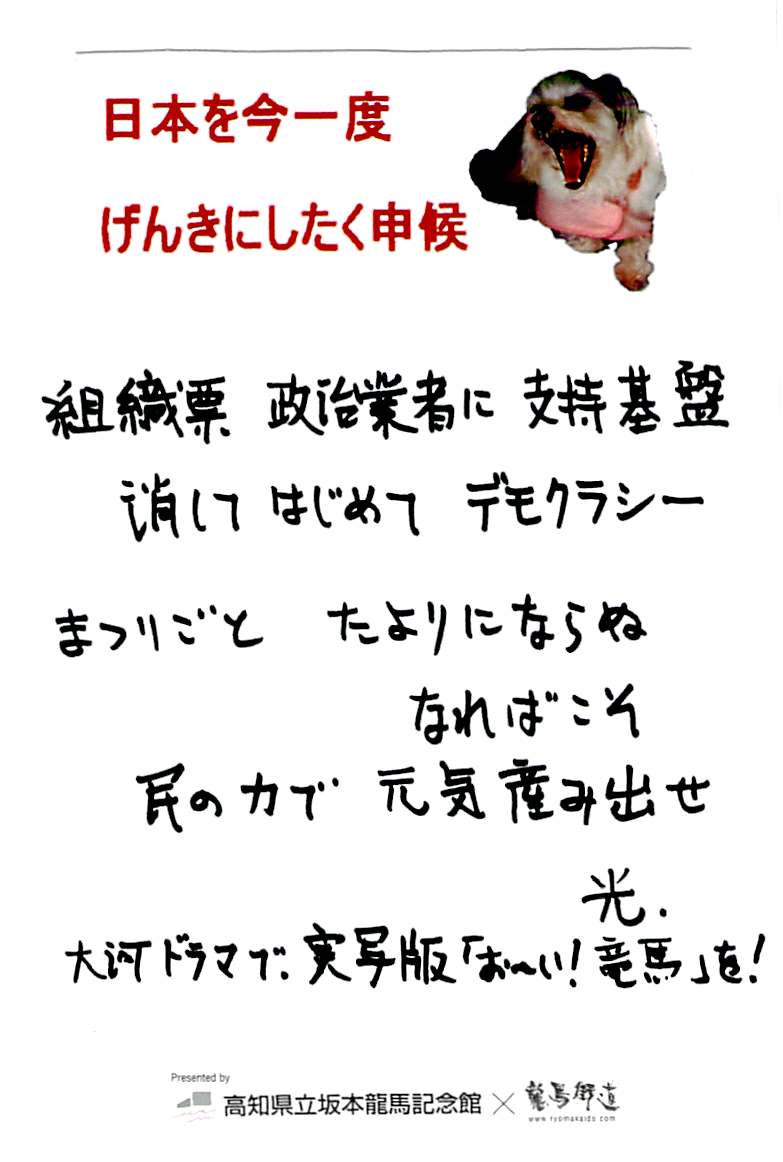 日本を今一度
げんきにしたく申候
組織票 政治業者に 支持基盤
消して はじめて デモクラシー
まつりごと たよりにならぬ
なればこそ
民の力で 元気産み出せ
光.
大河ドラマで、実写版「お〜い!竜馬」を!
Presented by
高知県立坂本龍馬記念館 × 龍馬街道
www.ryomakaido.com